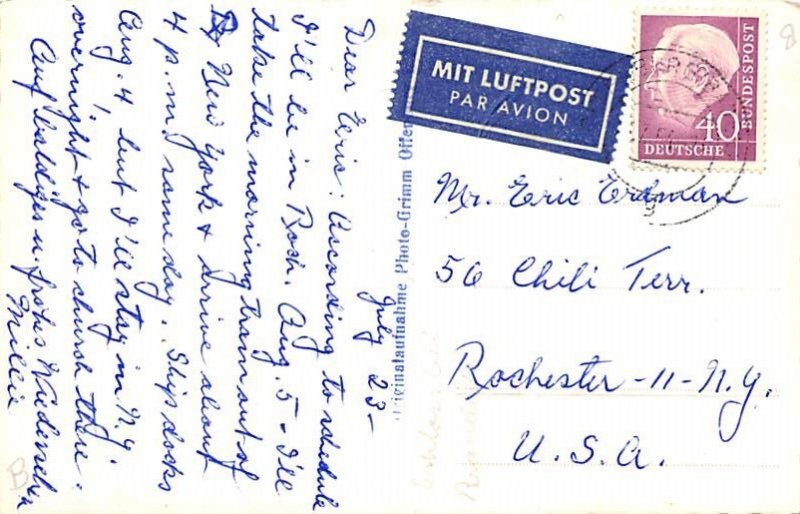 July 23-
Dear Eric: According to schedule
I'll be in Roch. Aug. 5 - I'll
take the morning train out of
New York & arrive about
4 p.m. same day. Ship docks
Aug. 4 but I'll stay in N.Y.
overnight & go to church there.
Auf baldiges u. frohes Wiedersehen
Millie
Originalaufnahme Photo-Grimm Offen
MIT LUFTPOST
PAR AVION
BUNDESPOST
40
DEUTSCHE
Mr. Eric Erdman
56 Chili Terr.
Rochester -11- N.Y.
U.S.A.
8
B